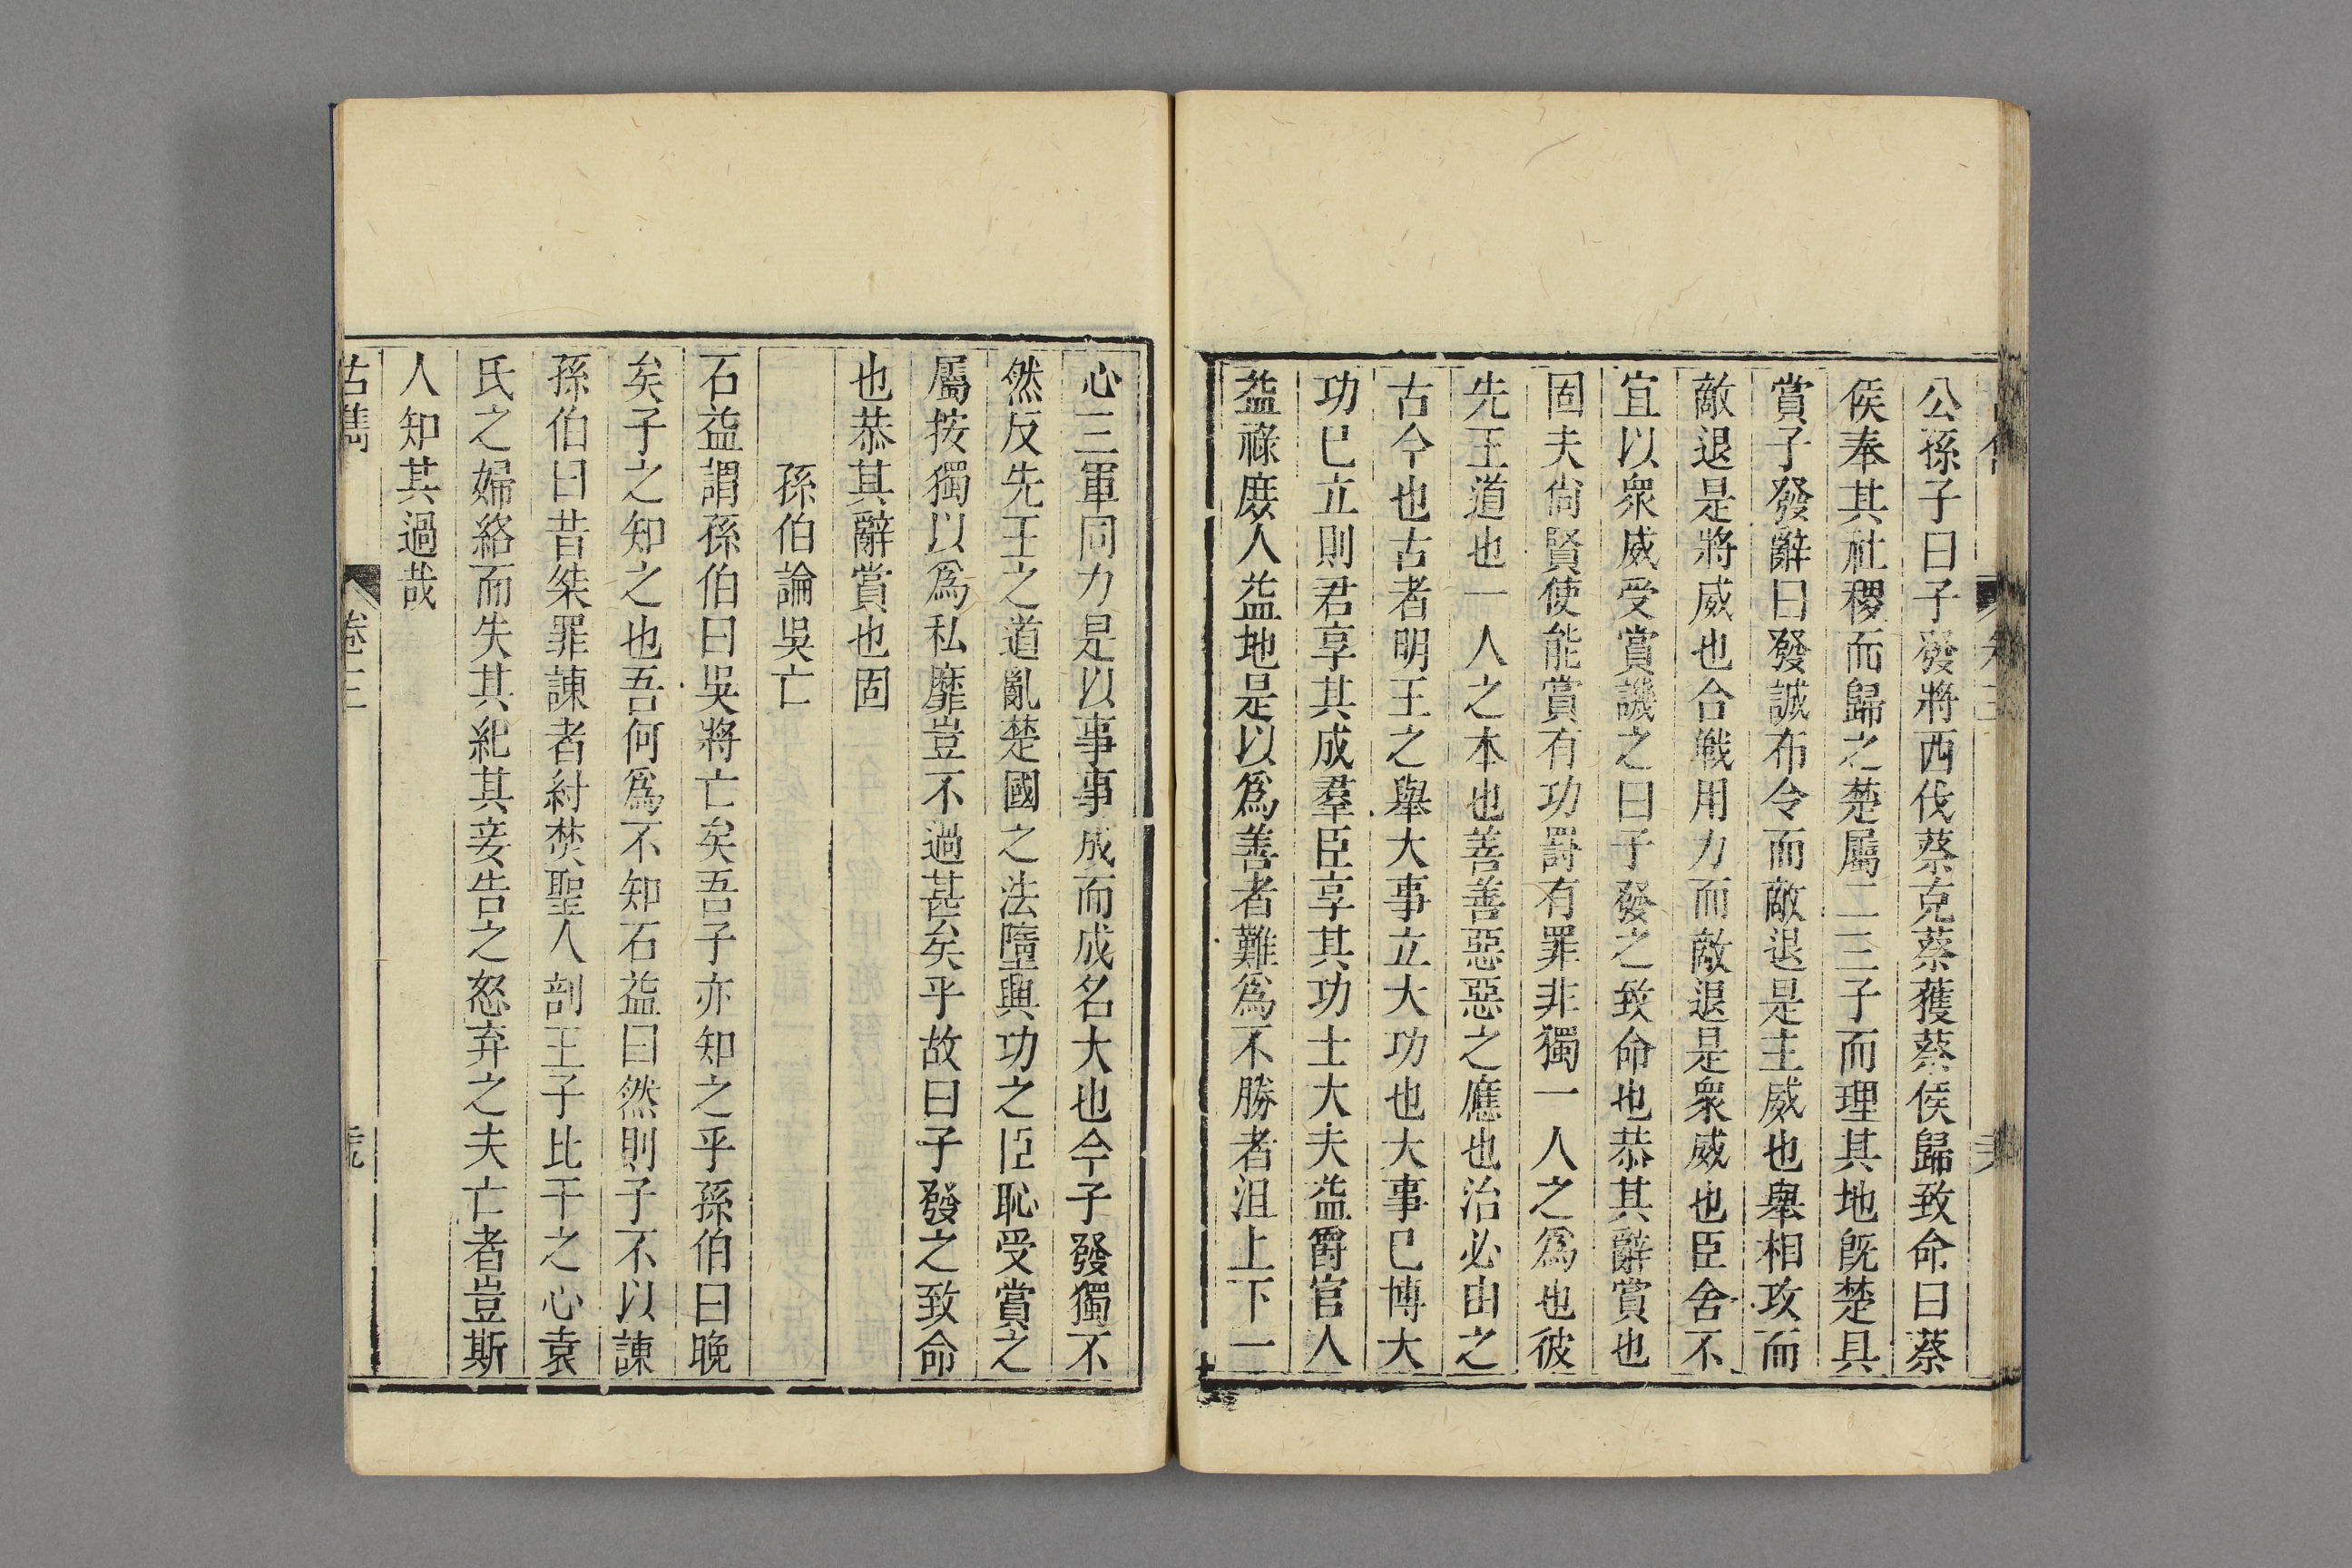 公孫子曰子發將西伐蔡克蔡獲蔡侯歸致命曰蔡
侯奉其社稷而歸之楚屬二三子而理其地旣楚具
賞子發辭曰發誠布令而敵退是主威也舉相攻而
敵退是將威也合戰用力而敵退是衆威也臣舍不
宜以衆威受賞譏之曰子發之致命也恭其辭賞也
固夫尙賢使能賞有功罰有罪非獨一人之爲也彼
先王道也一人之本也善善惡惡之應也治必由之
古今也古者明王之舉大事立大功也大事已博大
功已立則君享其成羣臣享其功士大夫益爵官人
益祿庶人益地是以爲善者難爲不勝者沮上下一
心三軍同力是以事事成而成名大也今子發獨不
然反先王之道亂楚國之法墮興功之臣恥受賞之
屬按獨以爲私靡豈不過甚矣乎故曰子發之致命
也恭其辭賞也固
孫伯論吳亡
石益謂孫伯曰吳將亡矣吾子亦知之乎孫伯曰晚
矣子之知之也吾何爲不知石益曰然則子不以諫
孫伯曰昔桀罪諫者紂焚聖人剖王子比干之心袁
氏之婦絡而失其紀其妾告之怒弃之夫亡者豈斯
人知其過哉
古雋
卷三